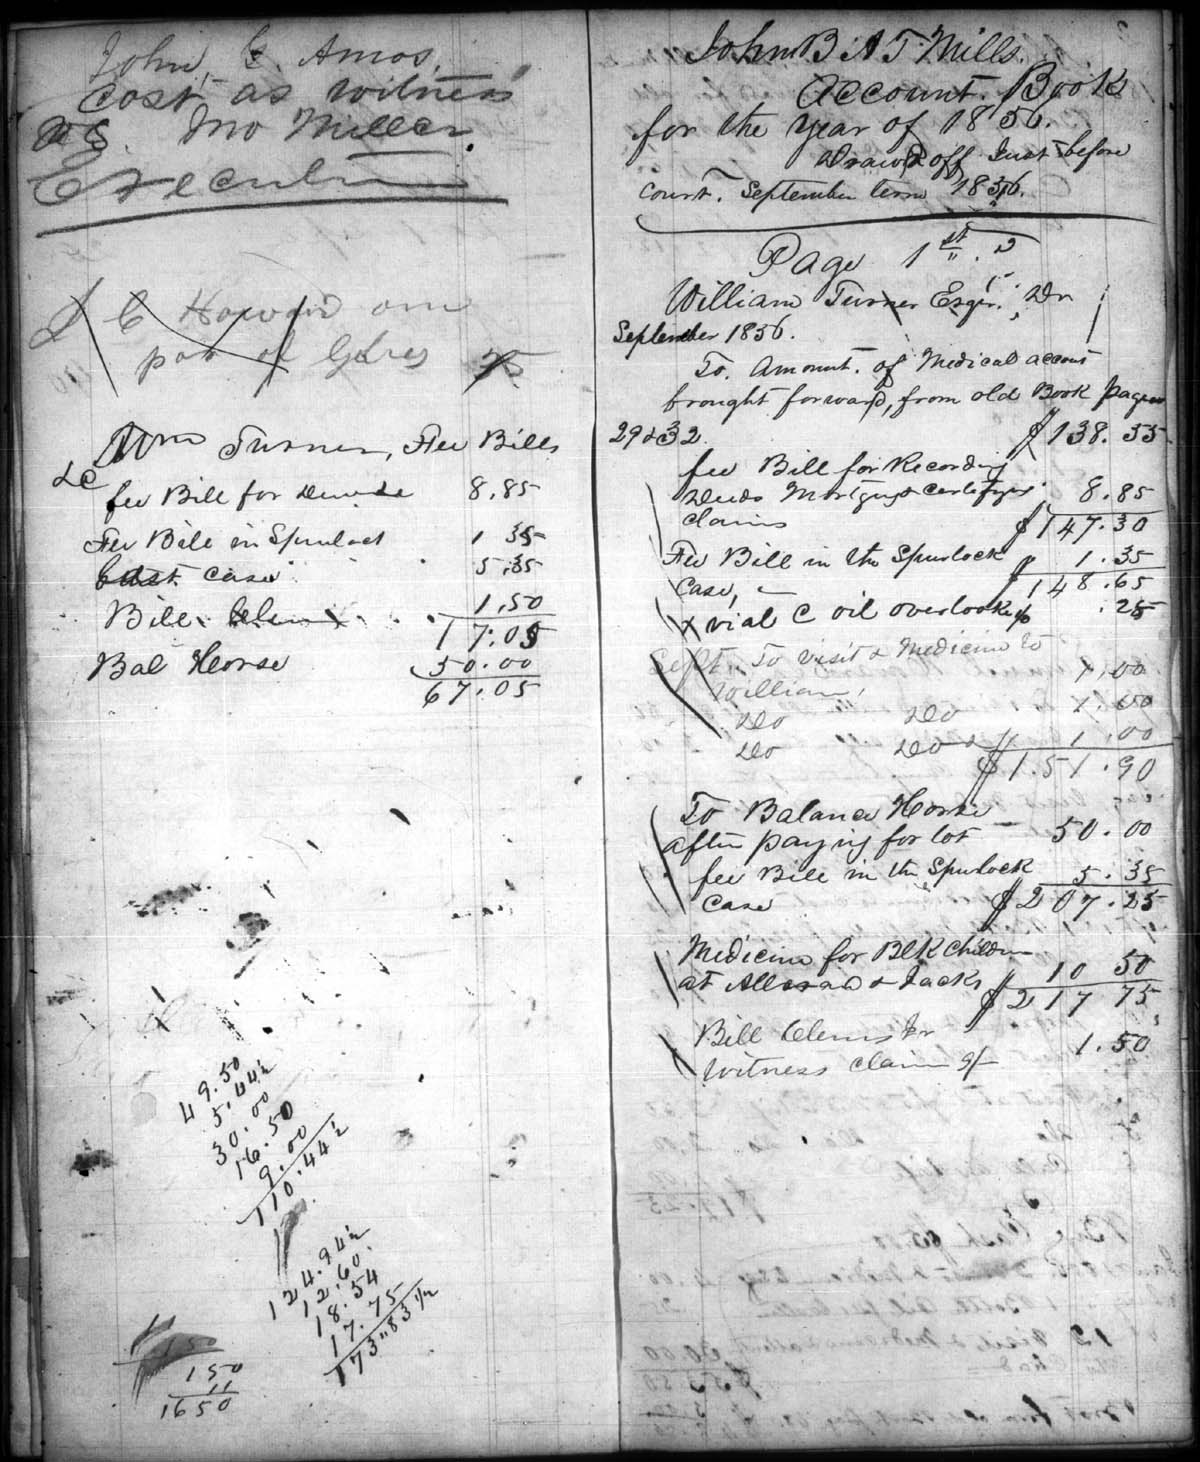 John C. Amos,
Cost as witness
vs. Jno Miller.
Execution
C Howard one
por of Gives 75
Wm Turner, Fee Bills
fee Bill for 8.85
Fee Bill in Spurlock 1 35
Cost case 5.35
Bill Clems 1,50
17.05
Bal Horse 50.00
67.05
49.50
5.44½
30.00
16.50
9.00
110.44½
124.94½
12.60
18.54
17.75
173"83½
150
11
1650
John B A T. Mills.
Account. Book
for the year of 1856.
Drawd off Just before
court. September term 1856.
Page 1st. 2
William Turner Esqr. Dr
September 1856.
To. Amount. of Medical account
brought forward, from old Book pages
29 & 32. $138.55
fee Bill for Recording
Deeds Mortgags certifys 8.85
claims $147.30
Fee Bill in the Spurlock 1.35
Case, $148.65
x vial C oil overlooked .25
Sept. To visit & Medicine to
William, 1,00
Do Do 1.00
Do Do 1.00
$1.51.90
To Balance Horse
after paying for lot 50.00
fee Bill in the Spurlock 5.35
Case $207.25
Medicine for Blk Children
at & Jacks 10 50
$217 75
Bill Clems for
witness claim 1.50